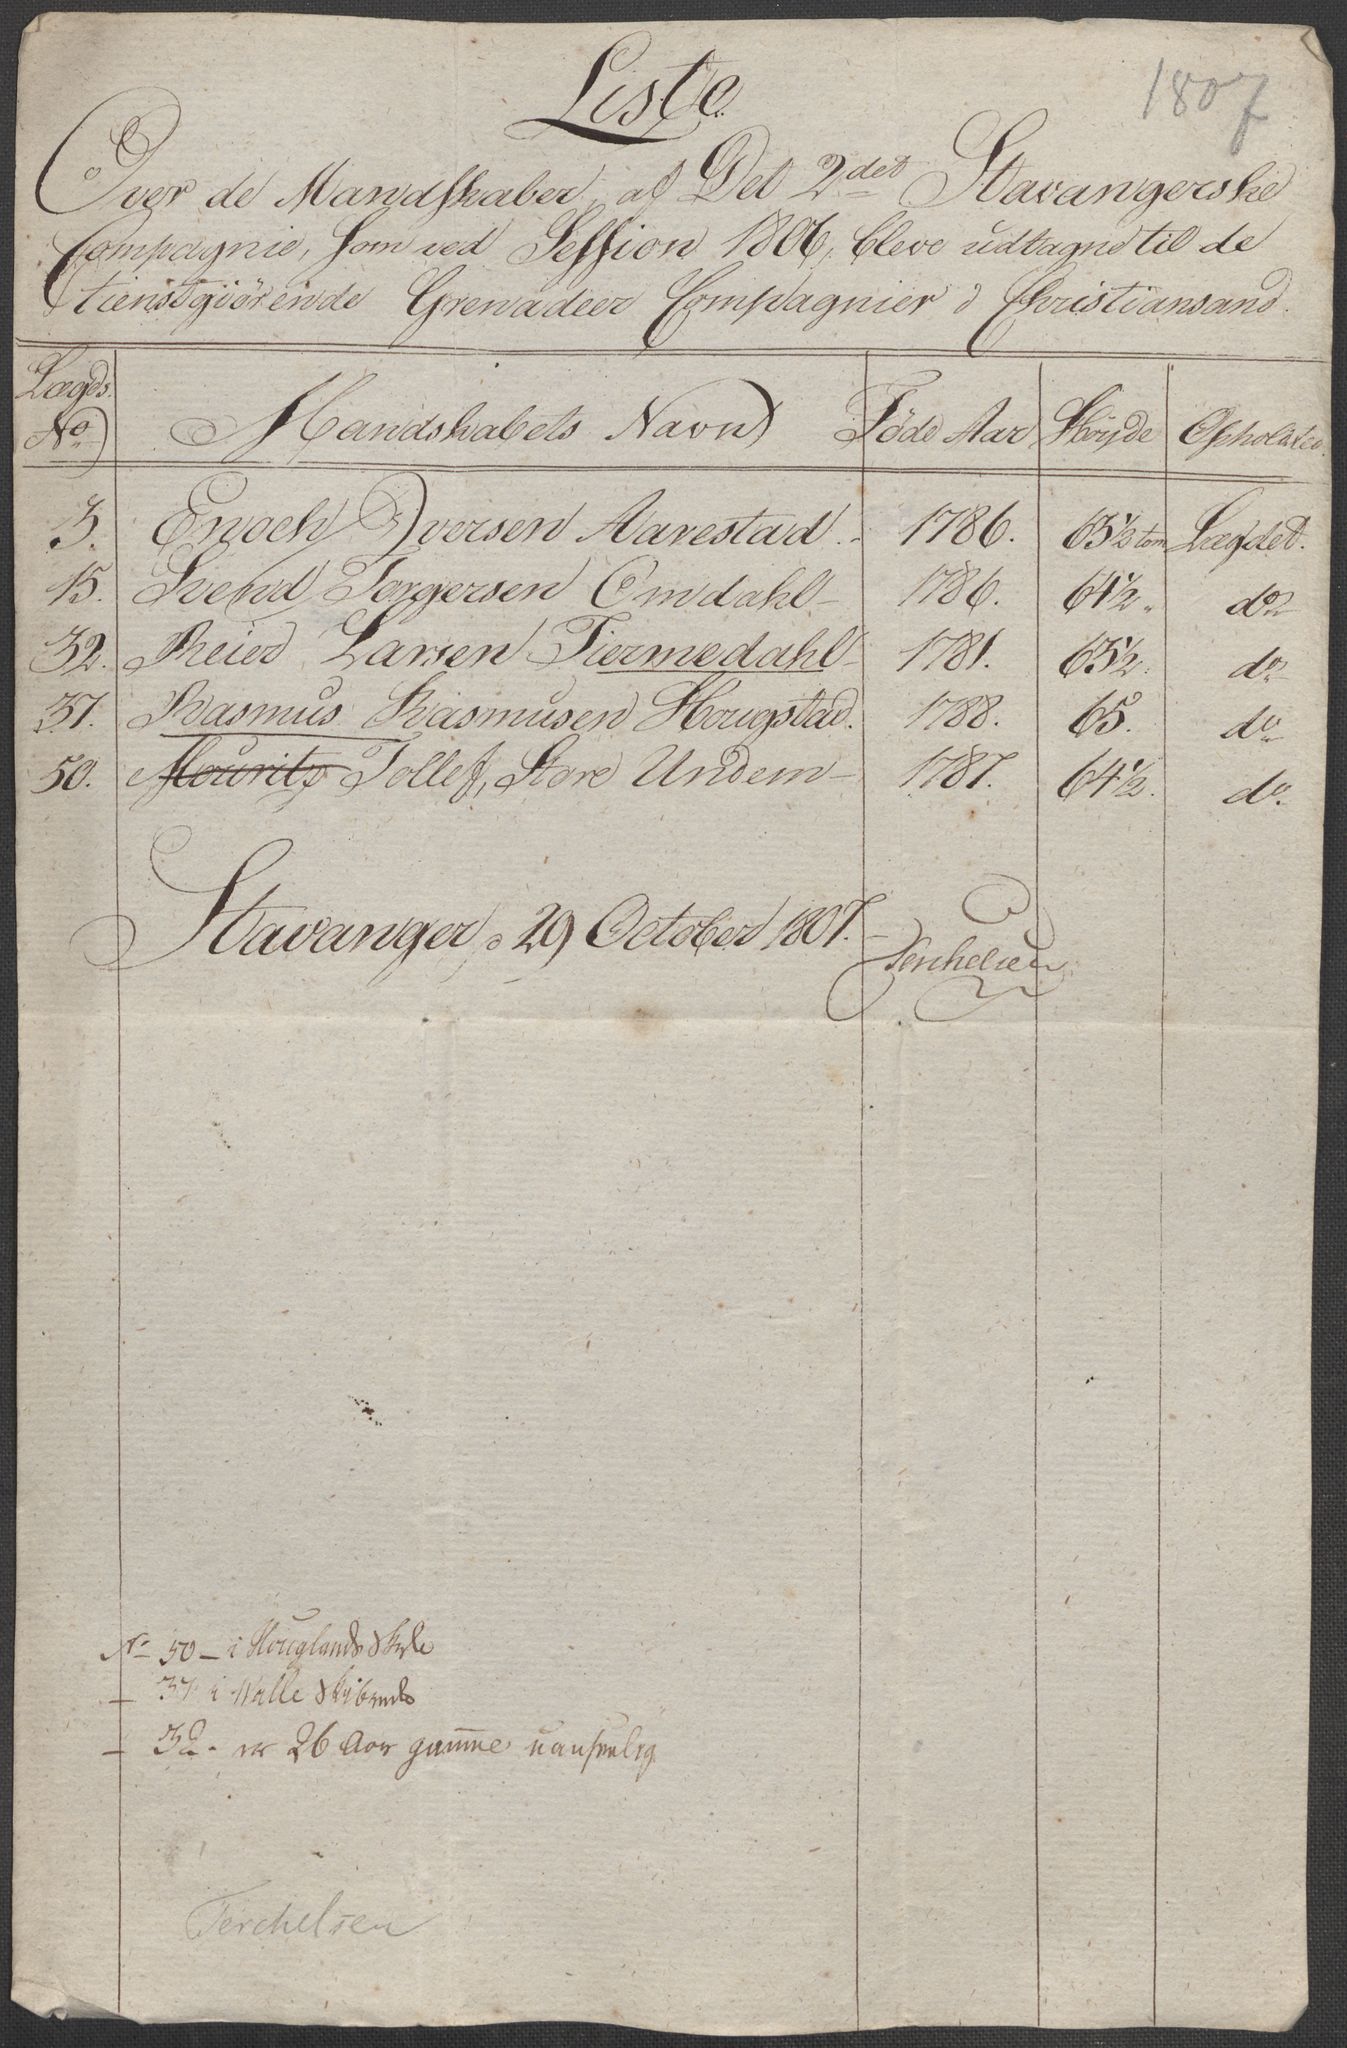 1807
Liste
Over de Mandskaber, af Det 2det Stavangerske
Compagnie, som ved Session 1806, bleve udtagne til de
tienstgiörende Grenadeer Compagnier i Christiansand.
Lægds No Mandskabets Navn Föde Aar Höyde Opholdsted
3. Enoch Iversen Aarestad 1786. 63½ tom Lægdet.
15. Svend Torgersen Omdahl 1786. 64½ do
32. Reier Larsen Tiermedahl 1781. 63½. do
37. Rasmus Rasmusen Hougstad. 1788. 65. do
50. Mouritz Tollef, Store Undem 1787. 64½. do.
Stavanger, d 29 October 1807.
Terchelsen
No 50 – i Houglands
– 37 i Walle Skibrede
– 32. er 26 Aar gamme uanseelig
Terchelsen